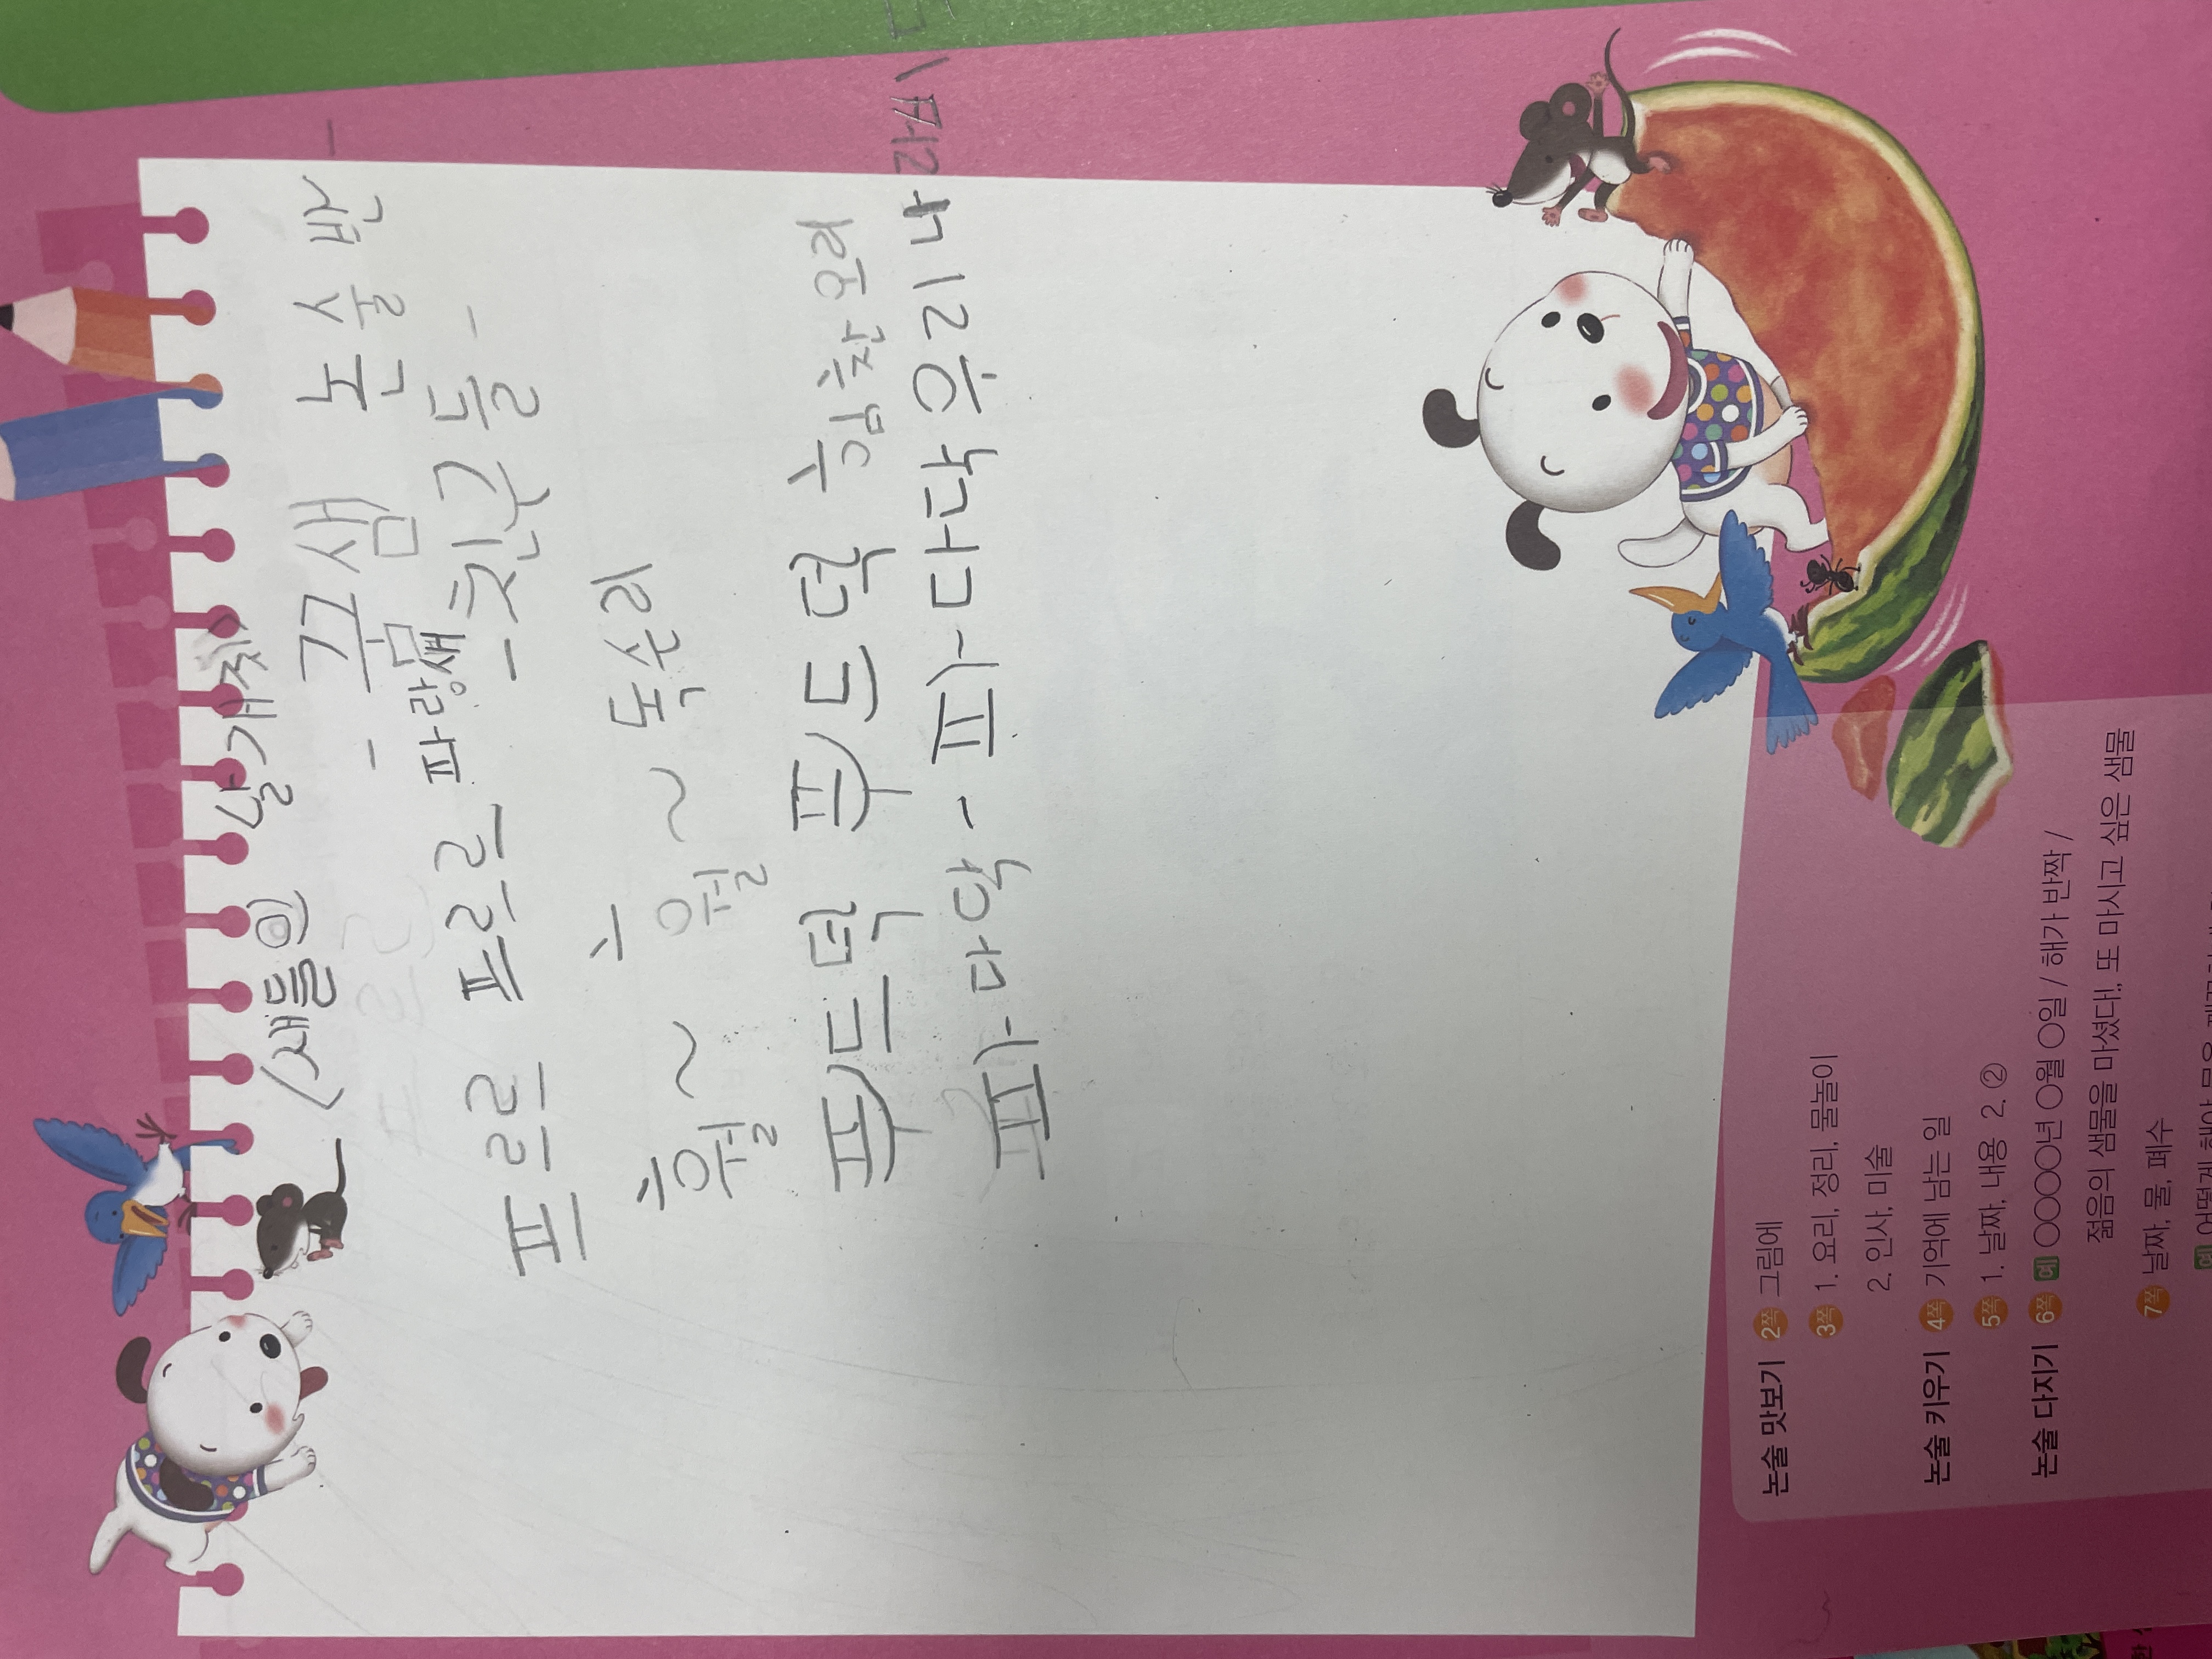 <새들의 날개짓>
- 꾸꿈샘 논술반 -
- 친구들 -
포르르 포르르 파랑새
훨~ 훨~ 독수리
푸드덕 푸드덕 힘찬 오리
파다닥 - 파다닥 우리 나
논술 맛보기 2쪽 그림에
3쪽 1. 요리, 정리, 물놀이
2. 인사, 미술
논술 키우기 4쪽 기억에 남는 일
5쪽 1. 날짜, 내용 2. ②
논술 다지기 6쪽 예 ○○○○년 ○월 ○일 / 해가 반짝 /
젊음의 샘물을 마셨다!, 또 마시고 싶은 샘물
7쪽 날짜, 물, 폐수